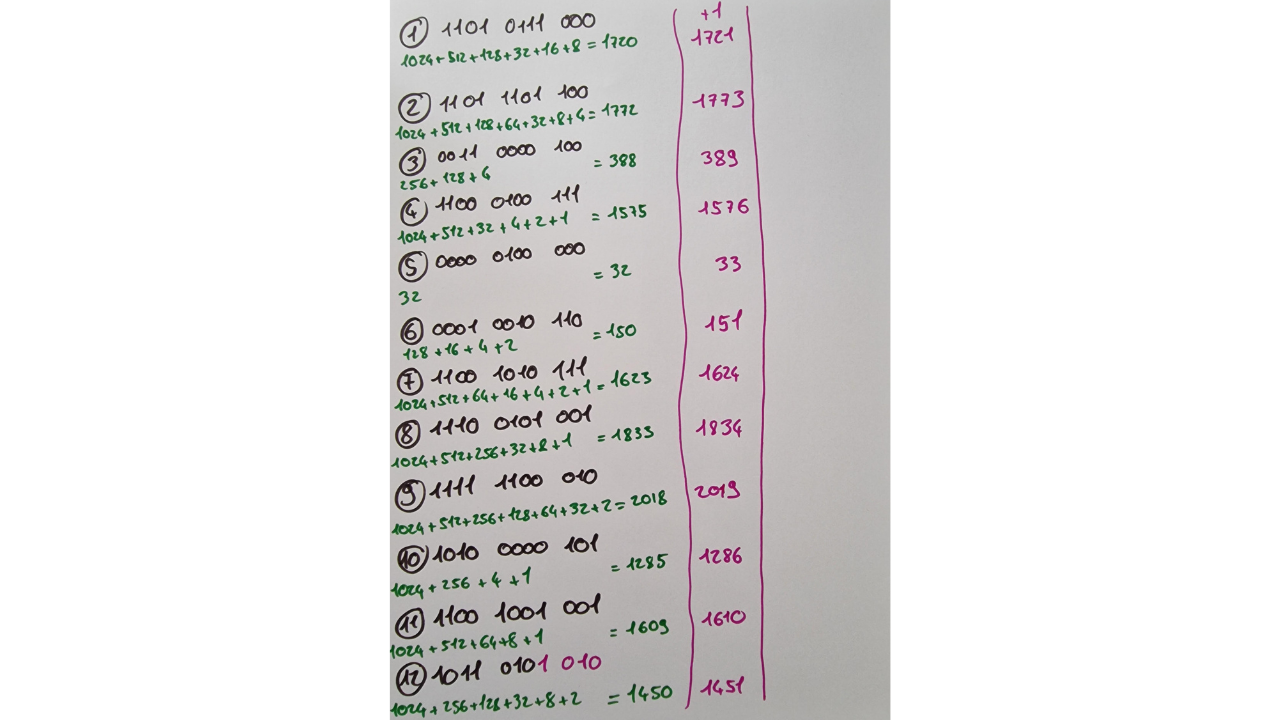 +1
① 1101 0111 000
1024+512+128+32+16+8 = 1720 1721
② 1101 1101 100
1024+512+128+64+32+8+4 = 1772 1773
③ 0011 0000 100
256+128+4 = 388 389
④ 1100 0100 111
1024+512+32+4+2+1 = 1575 1576
⑤ 0000 0100 000
32 = 32 33
⑥ 0001 0010 110
128+16+4+2 = 150 151
⑦ 1100 1010 111
1024+512+64+16+4+2+1 = 1623 1624
⑧ 1110 0101 001
1024+512+256+32+8+1 = 1833 1834
⑨ 1111 1100 010
1024+512+256+128+64+32+2 = 2018 2019
⑩ 1010 0000 101
1024+256+4+1 = 1285 1286
⑪ 1100 1001 001
1024+512+64+8+1 = 1609 1610
⑫ 1011 0101 010
1024+256+128+32+8+2 = 1450 1451